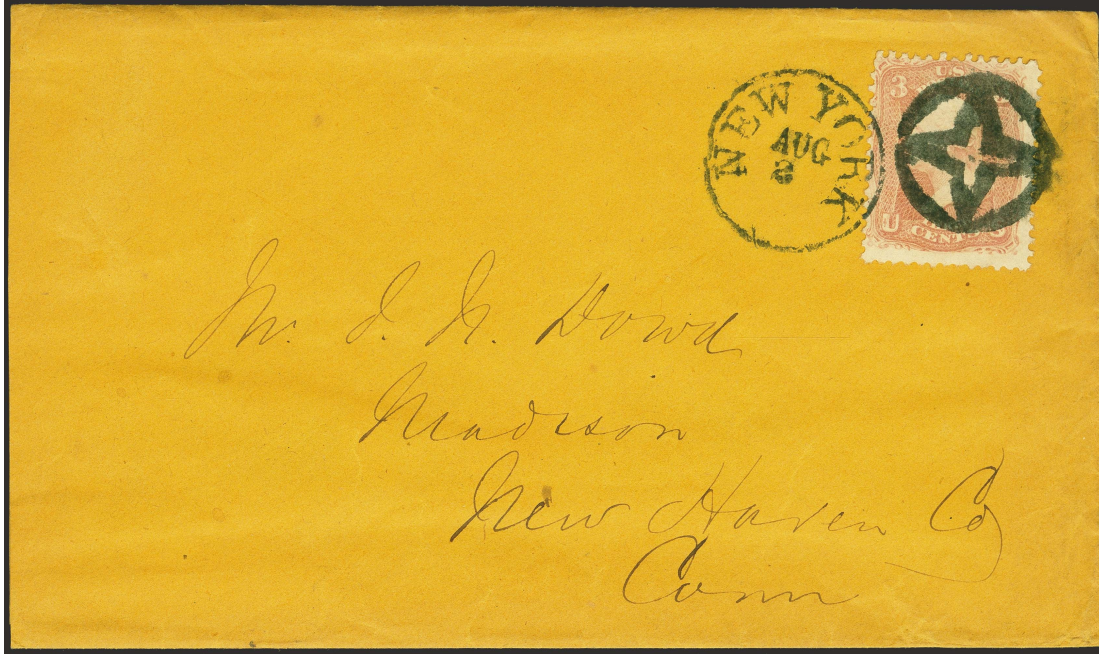 NEW YORK
AUG
2
3 U.S.
U CENTS
Mr. J. N. Dowd
Madison
New Haven Co
Conn